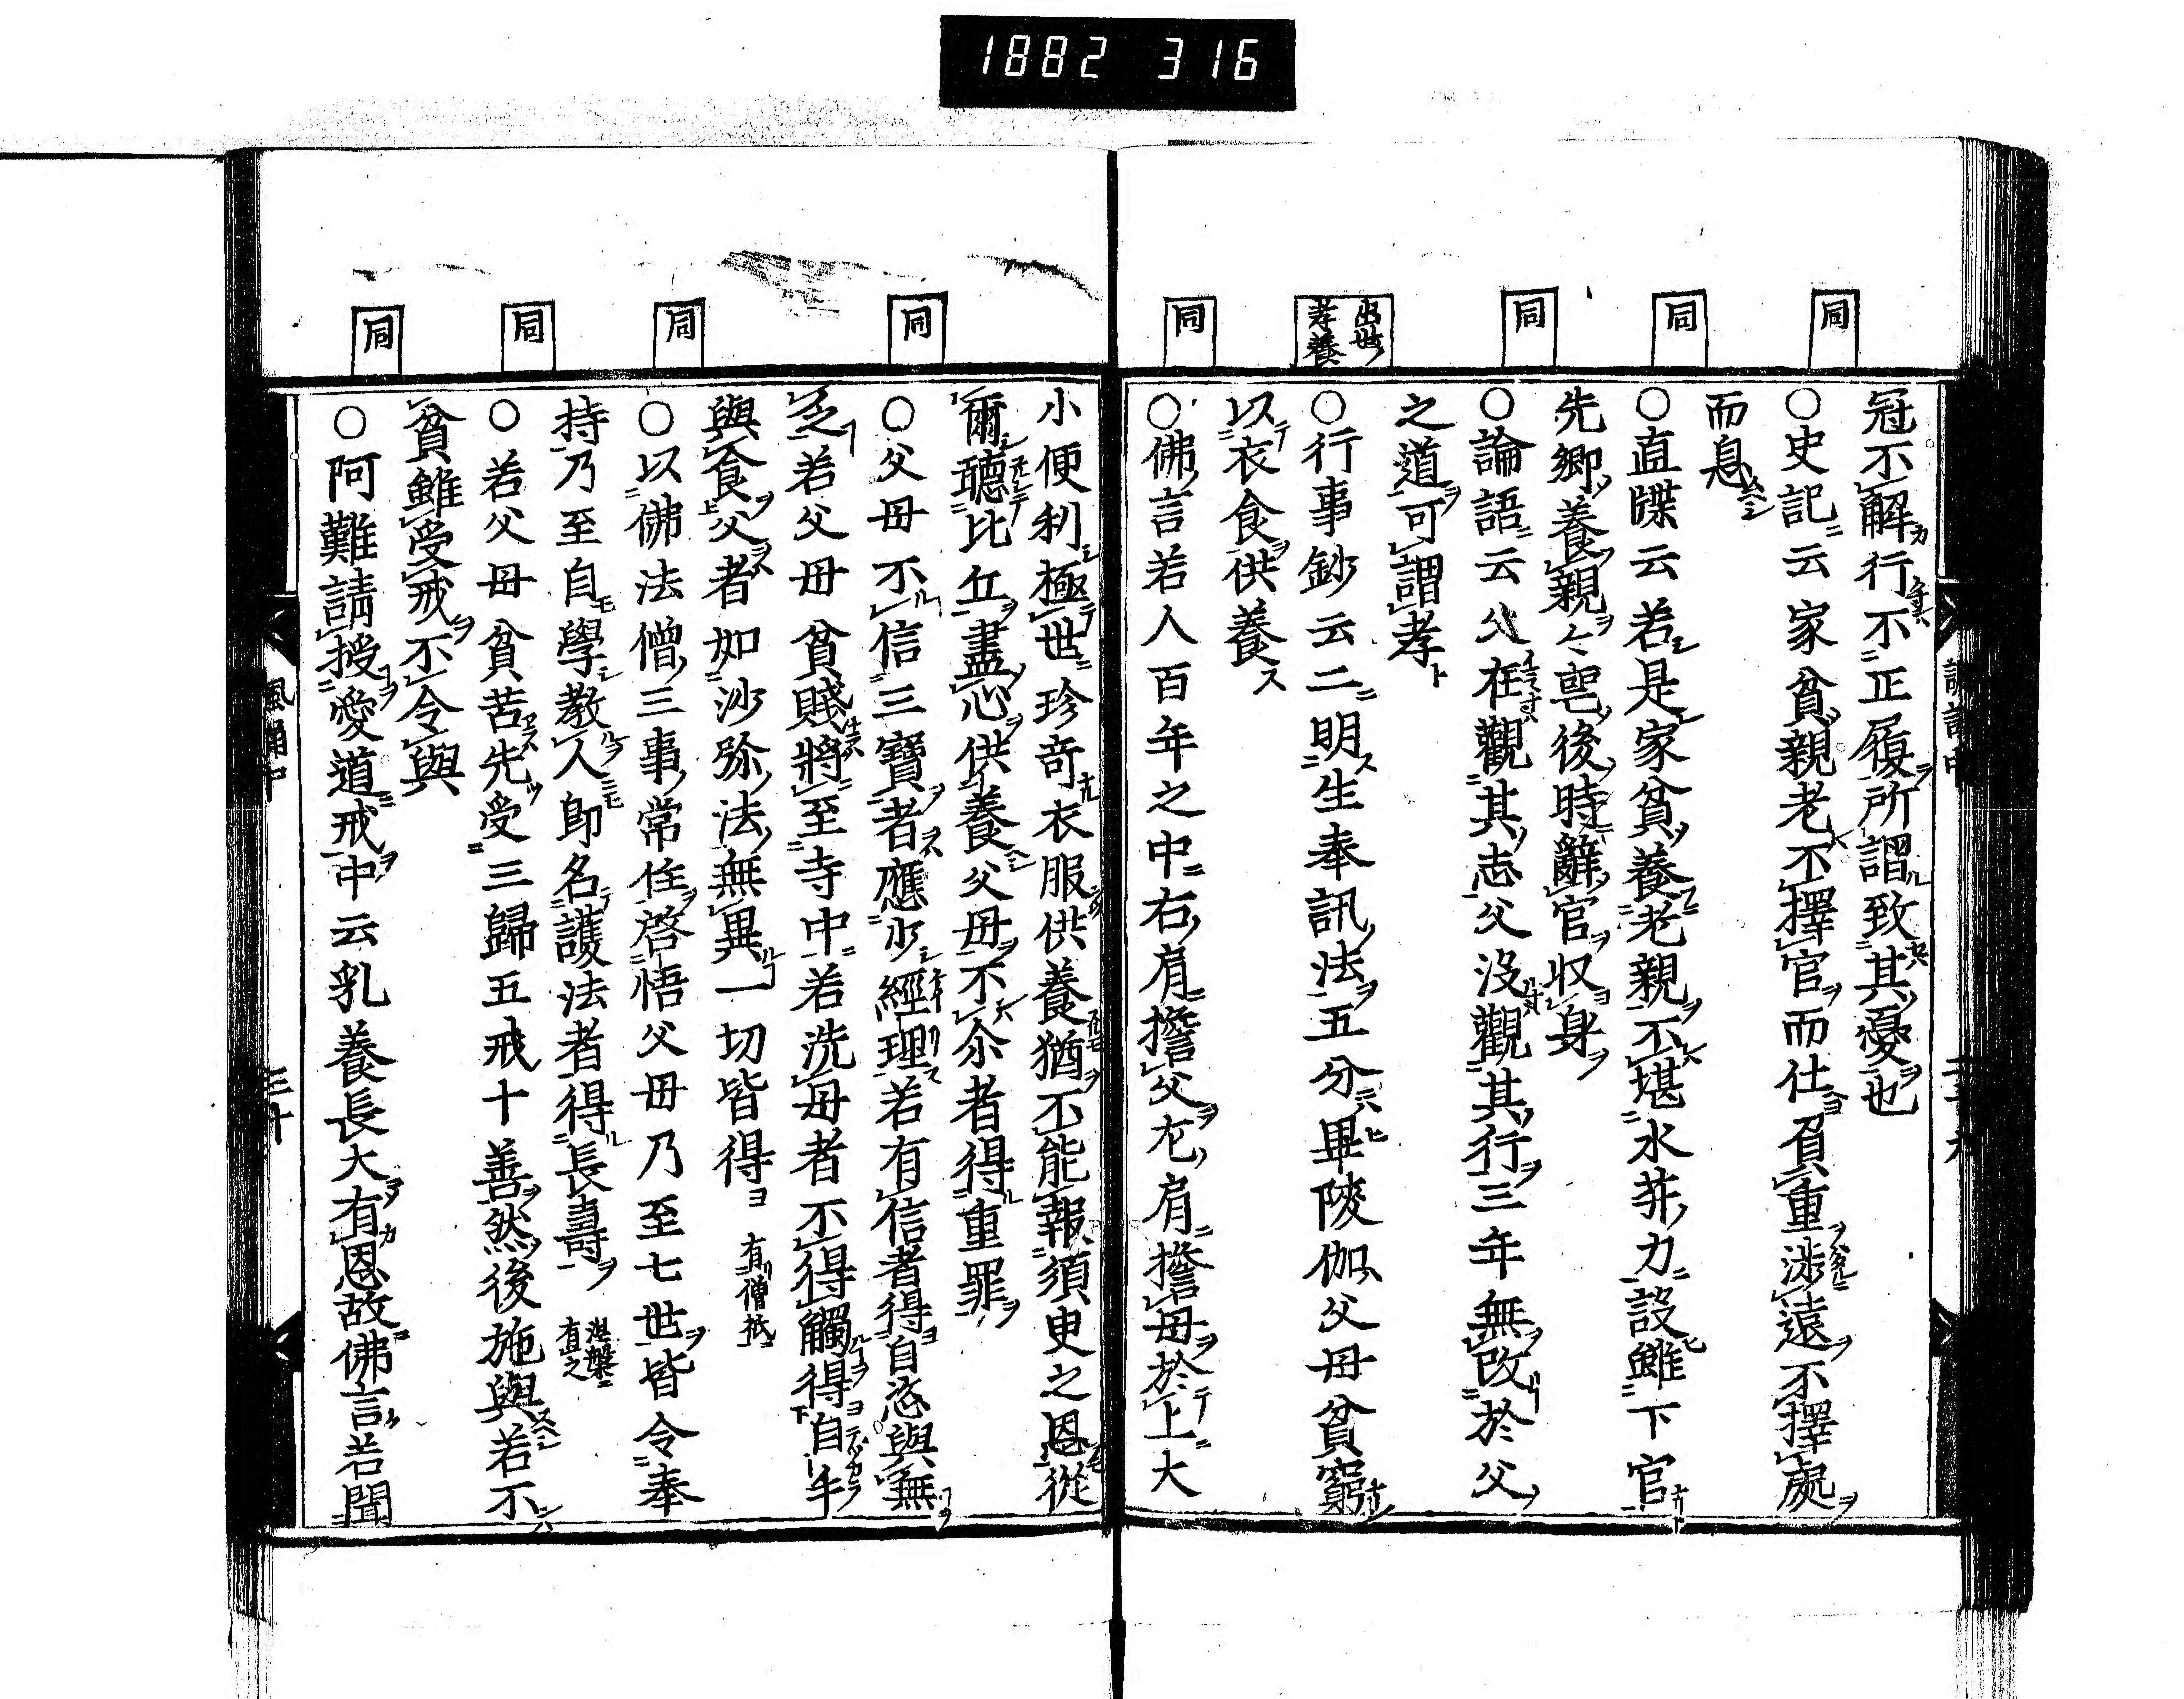 1882 316
同
同
同
出世ノ
孝養
同
冠不解行不正履所謂致其憂也
〇史記云家貧親老不擇官而仕負重涉遠不擇處
而息
〇直牒云若是家貧養老親不堪水菽力設雖下官
先鄉養親々亡後時辭官収身
〇論語云父在觀其志父沒觀其行三年無改於父
之道可謂孝
〇行事鈔云二明生奉訊法五分畢陵伽父母貧窮
以衣食供養
〇佛言若人百年之中右肩擔父左肩擔母於上大
同
同
同
同
小便利極世珍奇衣服供養猶不能報須臾之恩從
爾聽比丘盡心供養父母不尒者得重罪
〇父母不信三寶者應少經理若有信者得自恣與無
乏若父母貧賤將至寺中若洗母者不得觸得自手
與食父者如沙弥法無異一切皆得 有僧祇
〇以佛法僧三事常住啓悟父母乃至七世皆令奉
持乃至自學教人即名護法者得長壽 涅槃
有之
〇若父母貧苦先受三歸五戒十善然後施與若不
貧雖受戒不令與
〇阿難請授愛道戒中云乳養長大有恩故佛言若聞
三十